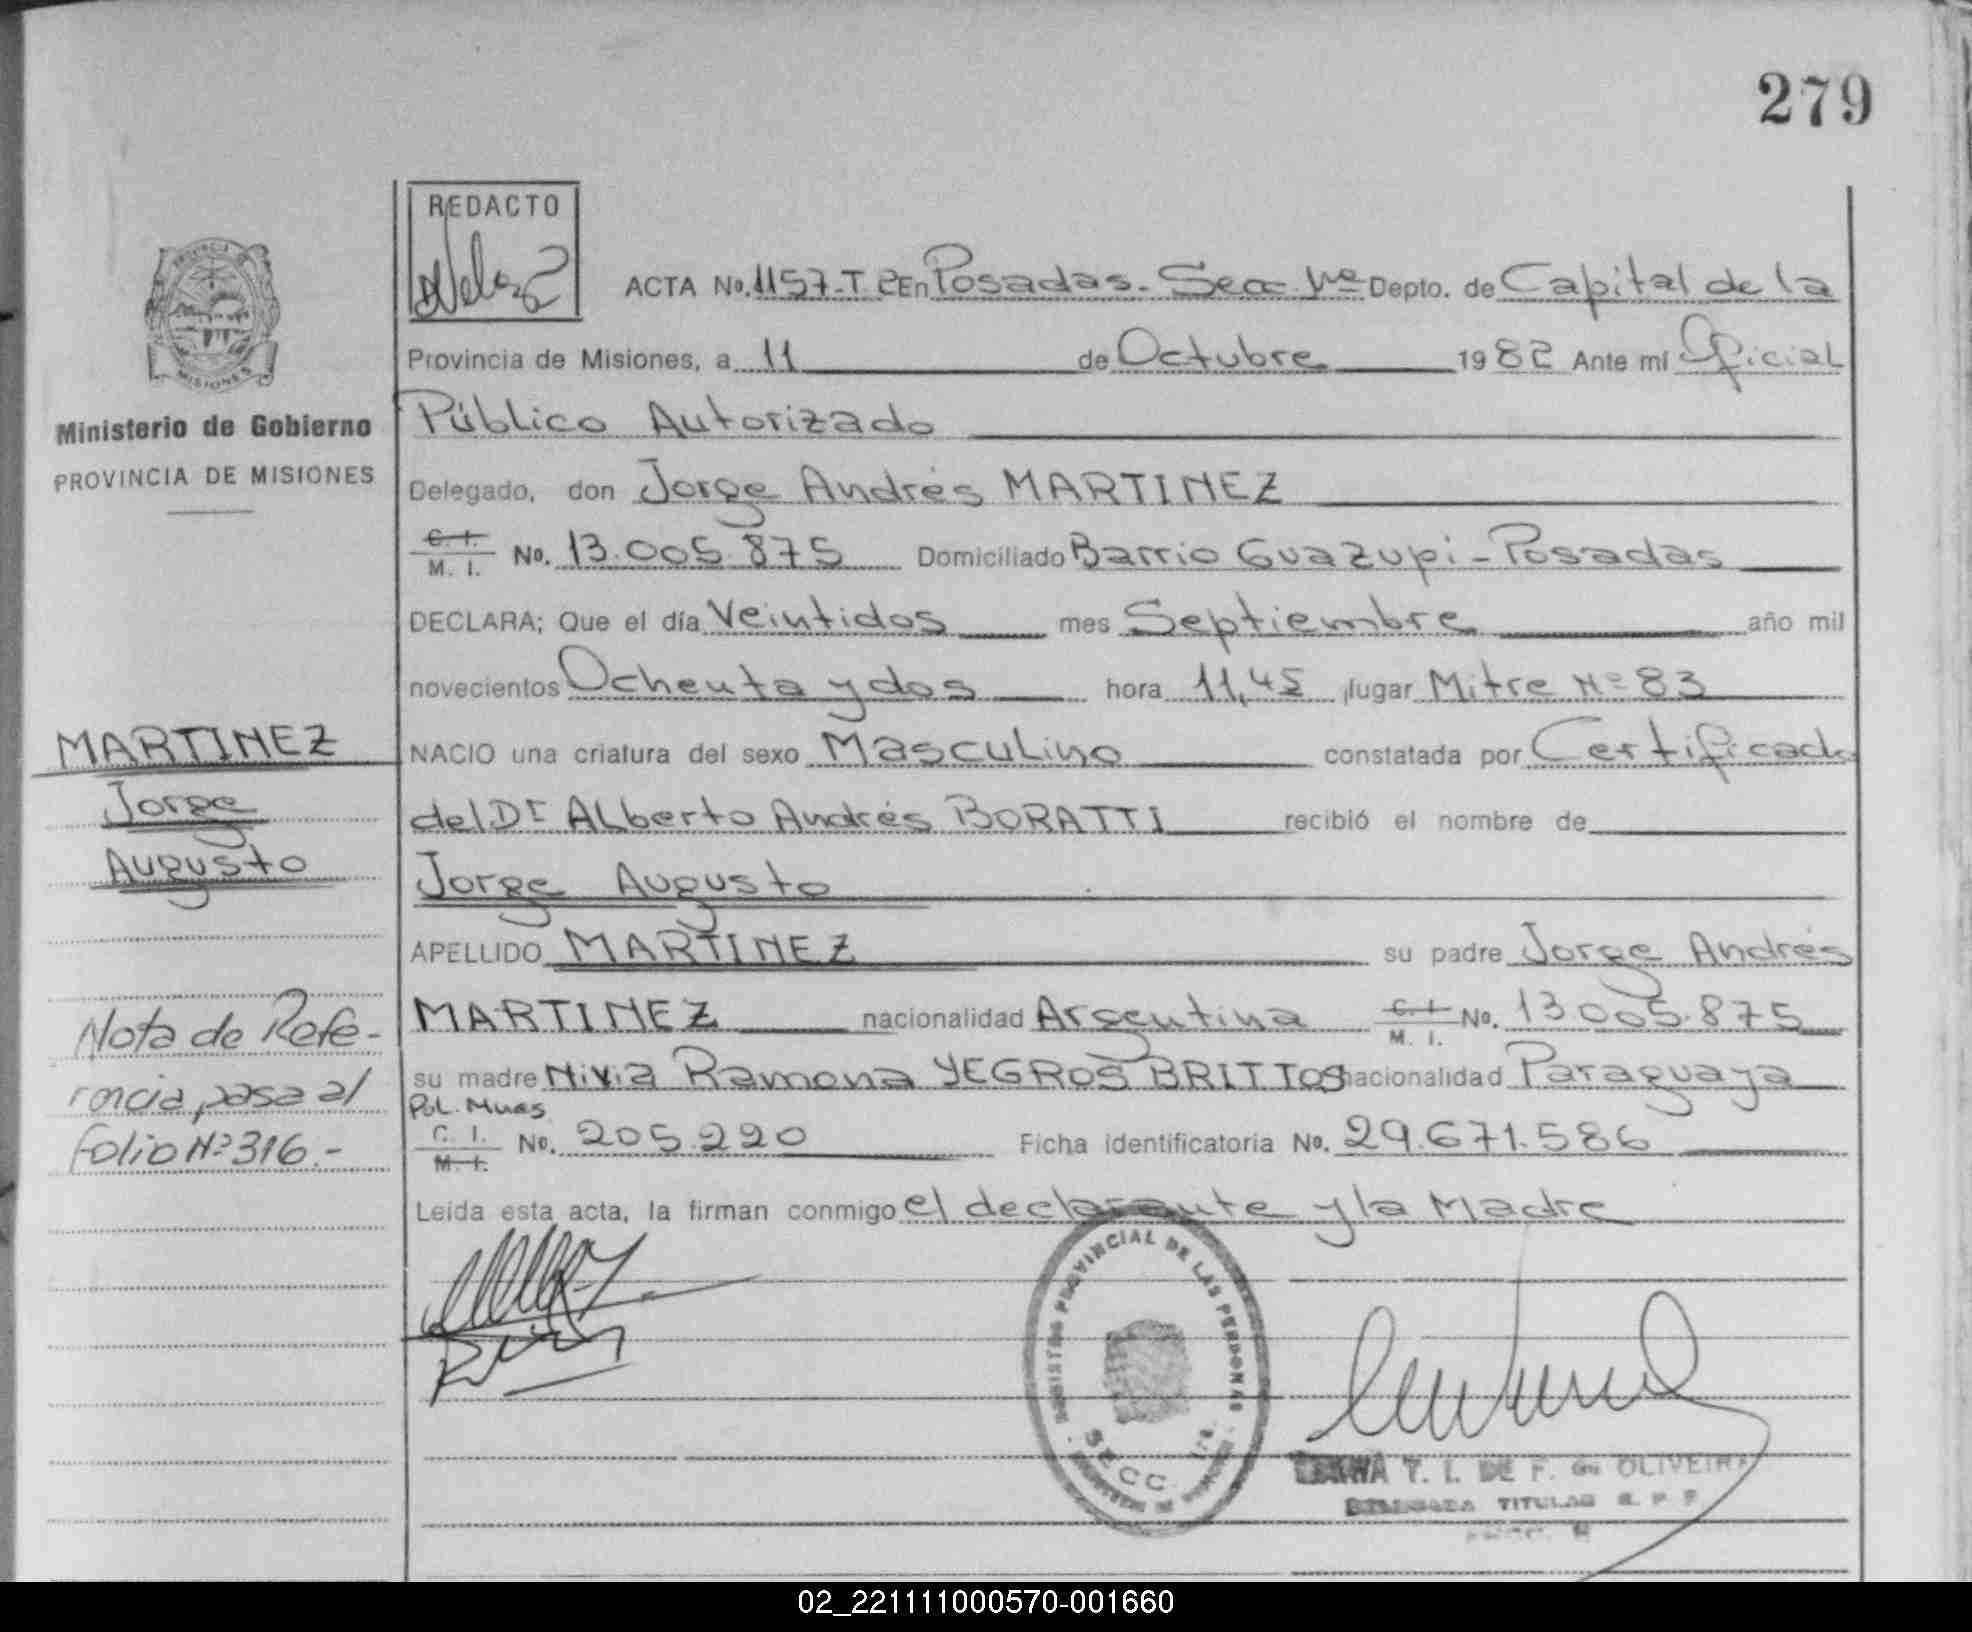 279
REDACTO
ACTA No. 1157-T 2 En Posadas - Secc 1ra Depto. de Capital de la
Provincia de Misiones, a 11 de Octubre 1982 Ante mi Oficial
Público Autorizado
Delegado, don Jorge Andrés MARTINEZ
C. I. M. I. No. 13.005.875 Domiciliado Barrio Guazupi - Posadas
DECLARA; Que el día Veintidos mes Septiembre año mil
novecientos Ochenta y dos hora 11,45 lugar Mitre Nº 83
NACIO una criatura del sexo Masculino constatada por Certificado
del Dr Alberto Andrés BORATTI recibió el nombre de
Jorge Augusto
APELLIDO MARTINEZ su padre Jorge Andrés
MARTINEZ nacionalidad Argentina C. I. M. I. No. 13.005.875
su madre Nivia Ramona YEGROS BRITTOS nacionalidad Paraguaya
Pol. Mnes
C. I. M. I. No. 205.220 Ficha identificatoria No. 29.671.586
Leida esta acta, la firman conmigo el declarante y la Madre
PROVINCIA DE
MISIONES
Ministerio de Gobierno
PROVINCIA DE MISIONES
MARTINEZ
Jorge
Augusto
Nota de Refe-
rencia, pasa al
folio Nº 316.-
REGISTRO PROVINCIAL DE LAS PERSONAS
SECC. 1ra.
T. I. DE F. de OLIVEIRA
DELEGADA TITULAR R. P. P.
02_221111000570-001660